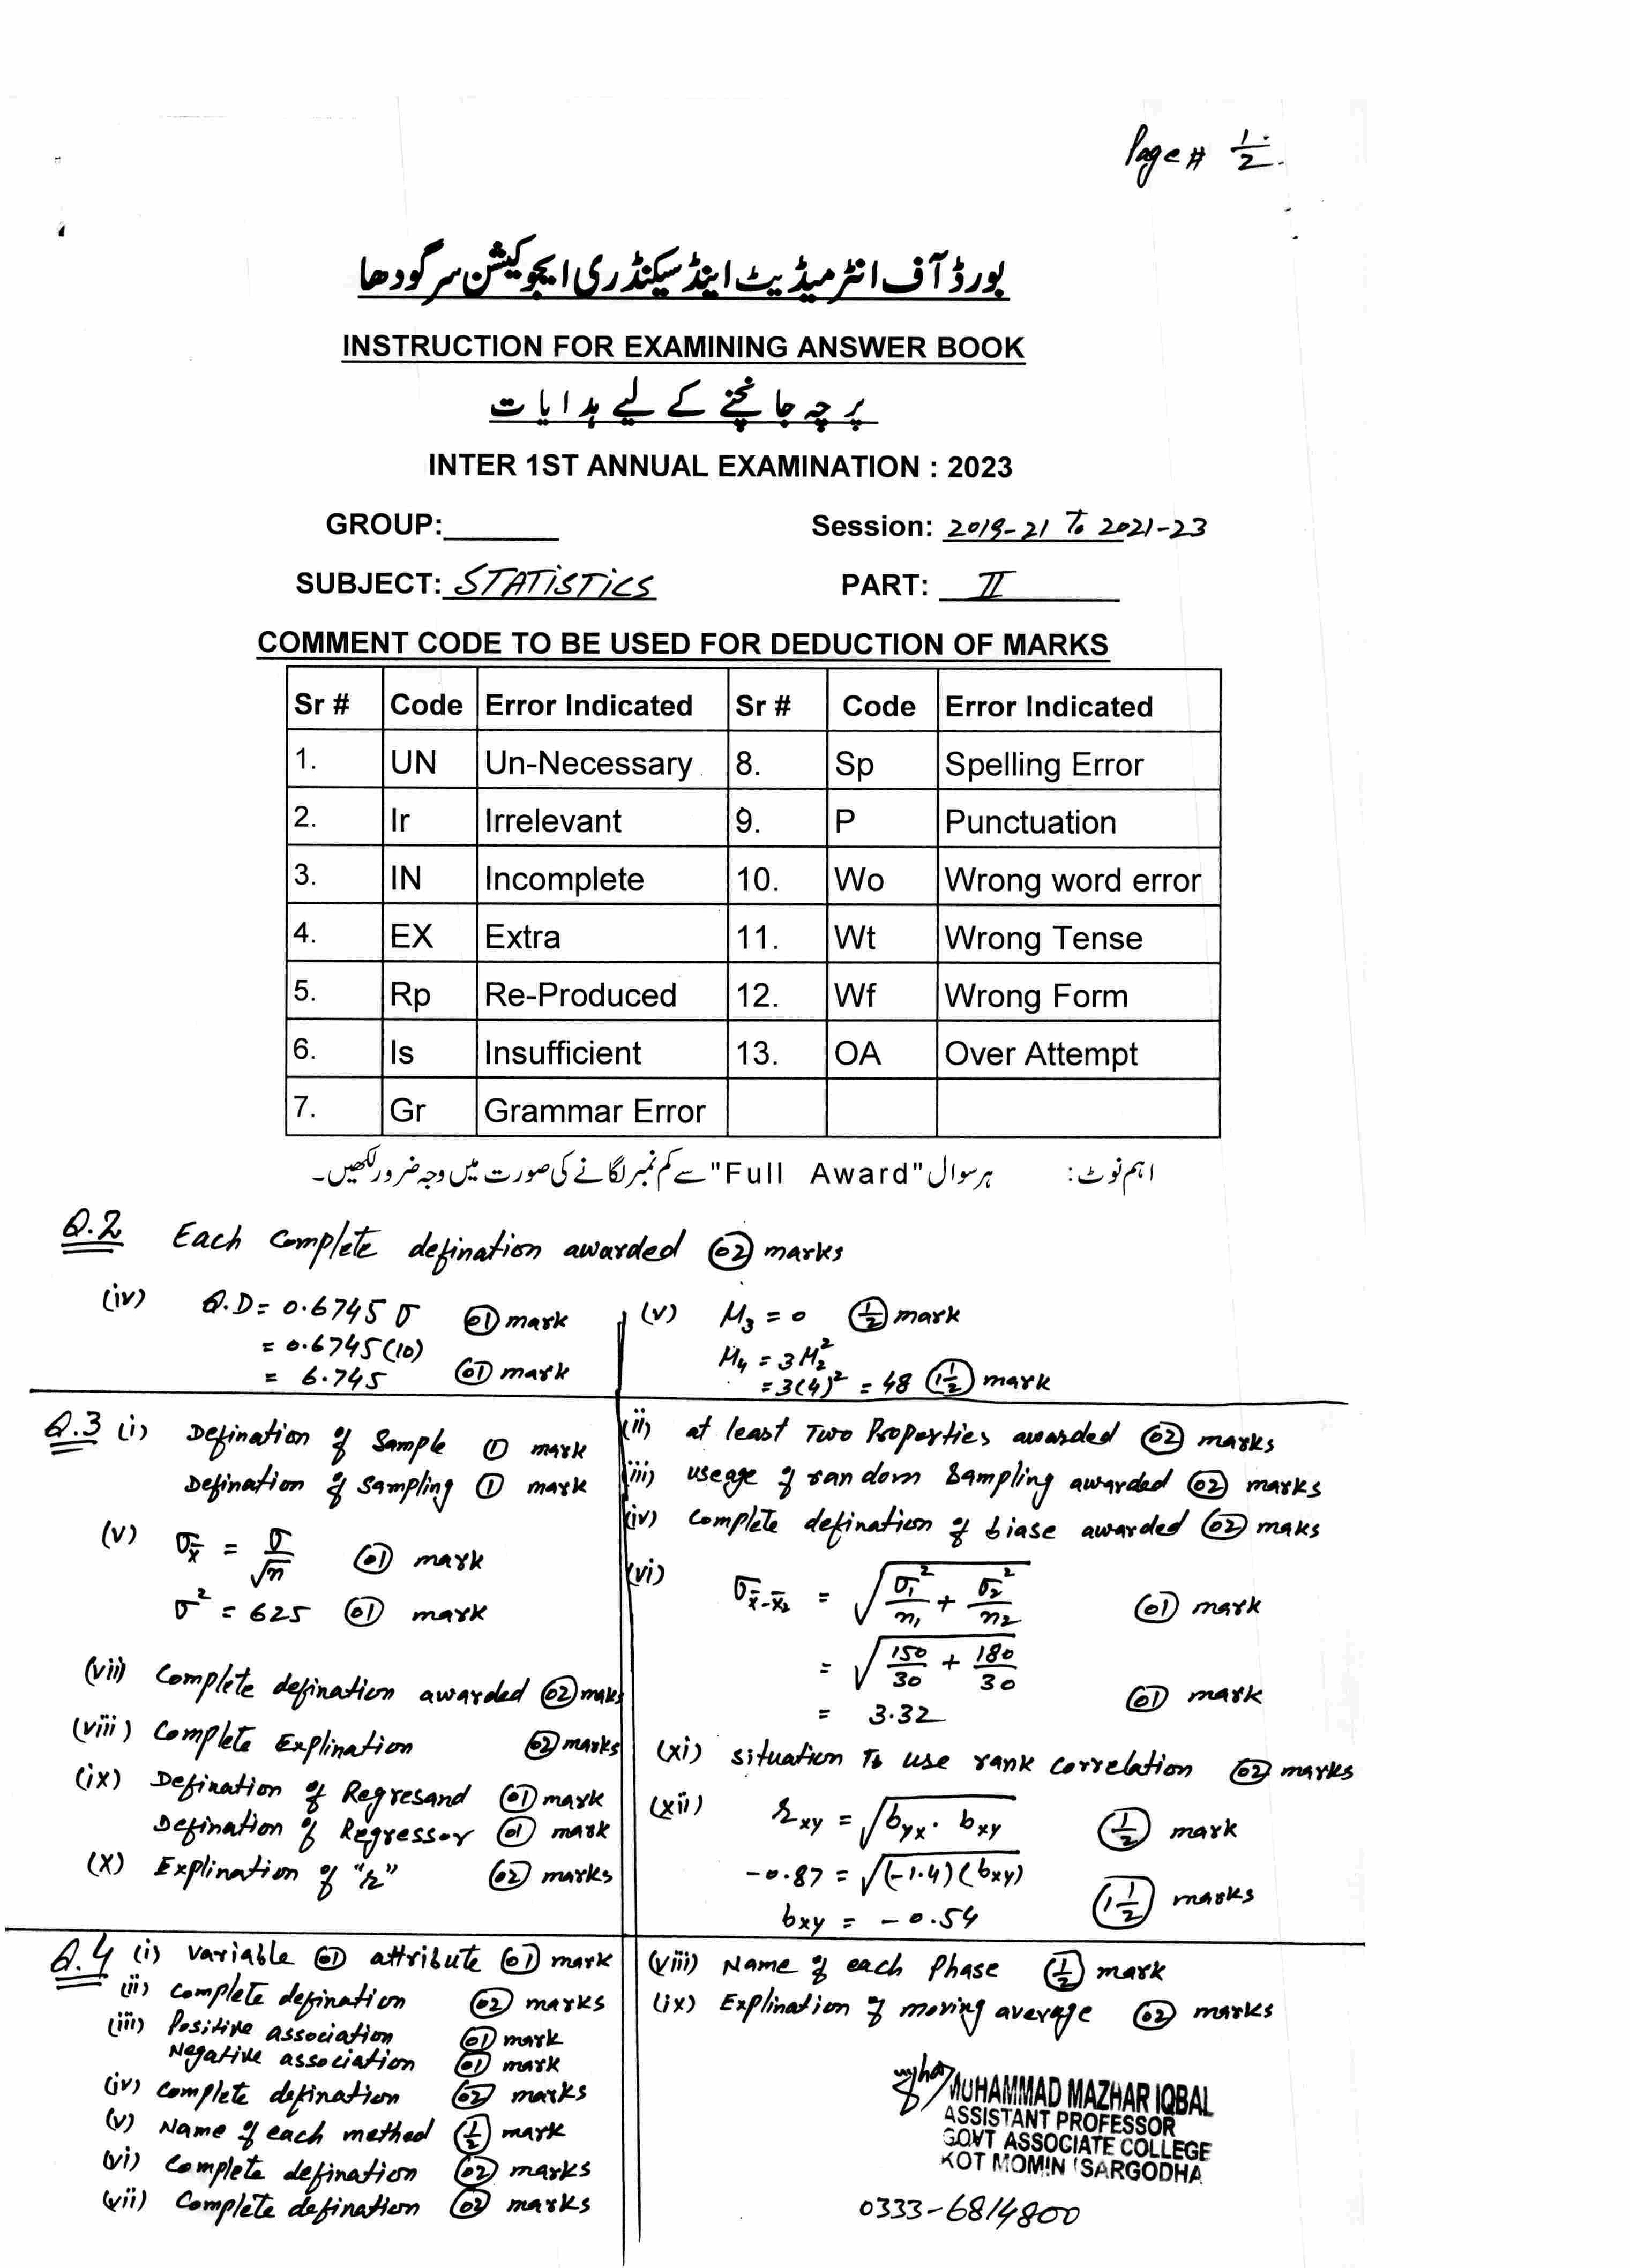 Page # 1/2.
بورڈ آف انٹرمیڈیٹ اینڈ سیکنڈری ایجوکیشن سرگودھا
INSTRUCTION FOR EXAMINING ANSWER BOOK
پرچہ جانچنے کے لیے ہدایات
INTER 1ST ANNUAL EXAMINATION : 2023
GROUP:______ Session: 2019-21 To 2021-23
SUBJECT: STATISTICS PART: II
COMMENT CODE TO BE USED FOR DEDUCTION OF MARKS
Sr # Code Error Indicated Sr # Code Error Indicated
1. UN Un-Necessary 8. Sp Spelling Error
2. Ir Irrelevant 9. P Punctuation
3. IN Incomplete 10. Wo Wrong word error
4. EX Extra 11. Wt Wrong Tense
5. Rp Re-Produced 12. Wf Wrong Form
6. Is Insufficient 13. OA Over Attempt
7. Gr Grammar Error
اہم نوٹ: ہر سوال "Full Award" سے کم نمبر لگانے کی صورت میں وجہ ضرور لکھیں۔
Q.2 Each Complete defination awarded 02 marks
(iv) Q.D = 0.6745 σ 01 mark
= 0.6745 (10)
= 6.745 01 mark
(v) μ3 = 0 1/2 mark
μ4 = 3μ2²
= 3(4)² = 48 1 1/2 mark
Q.3 (i) Defination of Sample 1 mark
Defination of Sampling 1 mark
(ii) at least Two Properties awarded 02 marks
(iii) useage of random Sampling awarded 02 marks
(iv) Complete defination of biase awarded 02 maks
(v) σx̄ = σ/√n 01 mark
σ² = 625 01 mark
(vi) σx̄-x̄2 = √(σ1²/n1 + σ2²/n2) 01 mark
= √(150/30 + 180/30)
= 3.32 01 mark
(vii) Complete defination awarded 02 maks
(viii) Complete Explination 02 marks
(ix) Defination of Regresand 01 mark
Defination of Regressor 01 mark
(X) Explination of "r" 02 marks
(xi) situation To use rank correlation 02 marks
(xii) rxy = √(byx . bxy) 1/2 mark
-0.87 = √((-1.4)(bxy))
bxy = -0.54 1 1/2 marks
Q.4 (i) variable 01 attribute 01 mark
(ii) Complete defination 02 marks
(iii) Positive association 01 mark
Negative association 01 mark
(iv) Complete defination 02 marks
(v) Name of each method 1/2 mark
(vi) Complete defination 02 marks
(vii) Complete defination 02 marks
(viii) Name of each Phase 1/2 mark
(ix) Explination of moving average 02 marks
MUHAMMAD MAZHAR IQBAL
ASSISTANT PROFESSOR
GOVT ASSOCIATE COLLEGE
KOT MOMIN (SARGODHA
0333-6814800